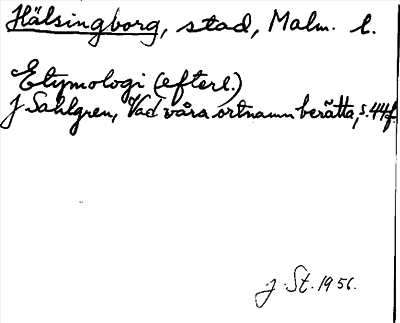 Hälsingborg, stad, Malm. l.
Etymologi (efterl.)
J Sahlgren, Vad våra ortnamn berätta, s. 44 f.
J. St. 1956.